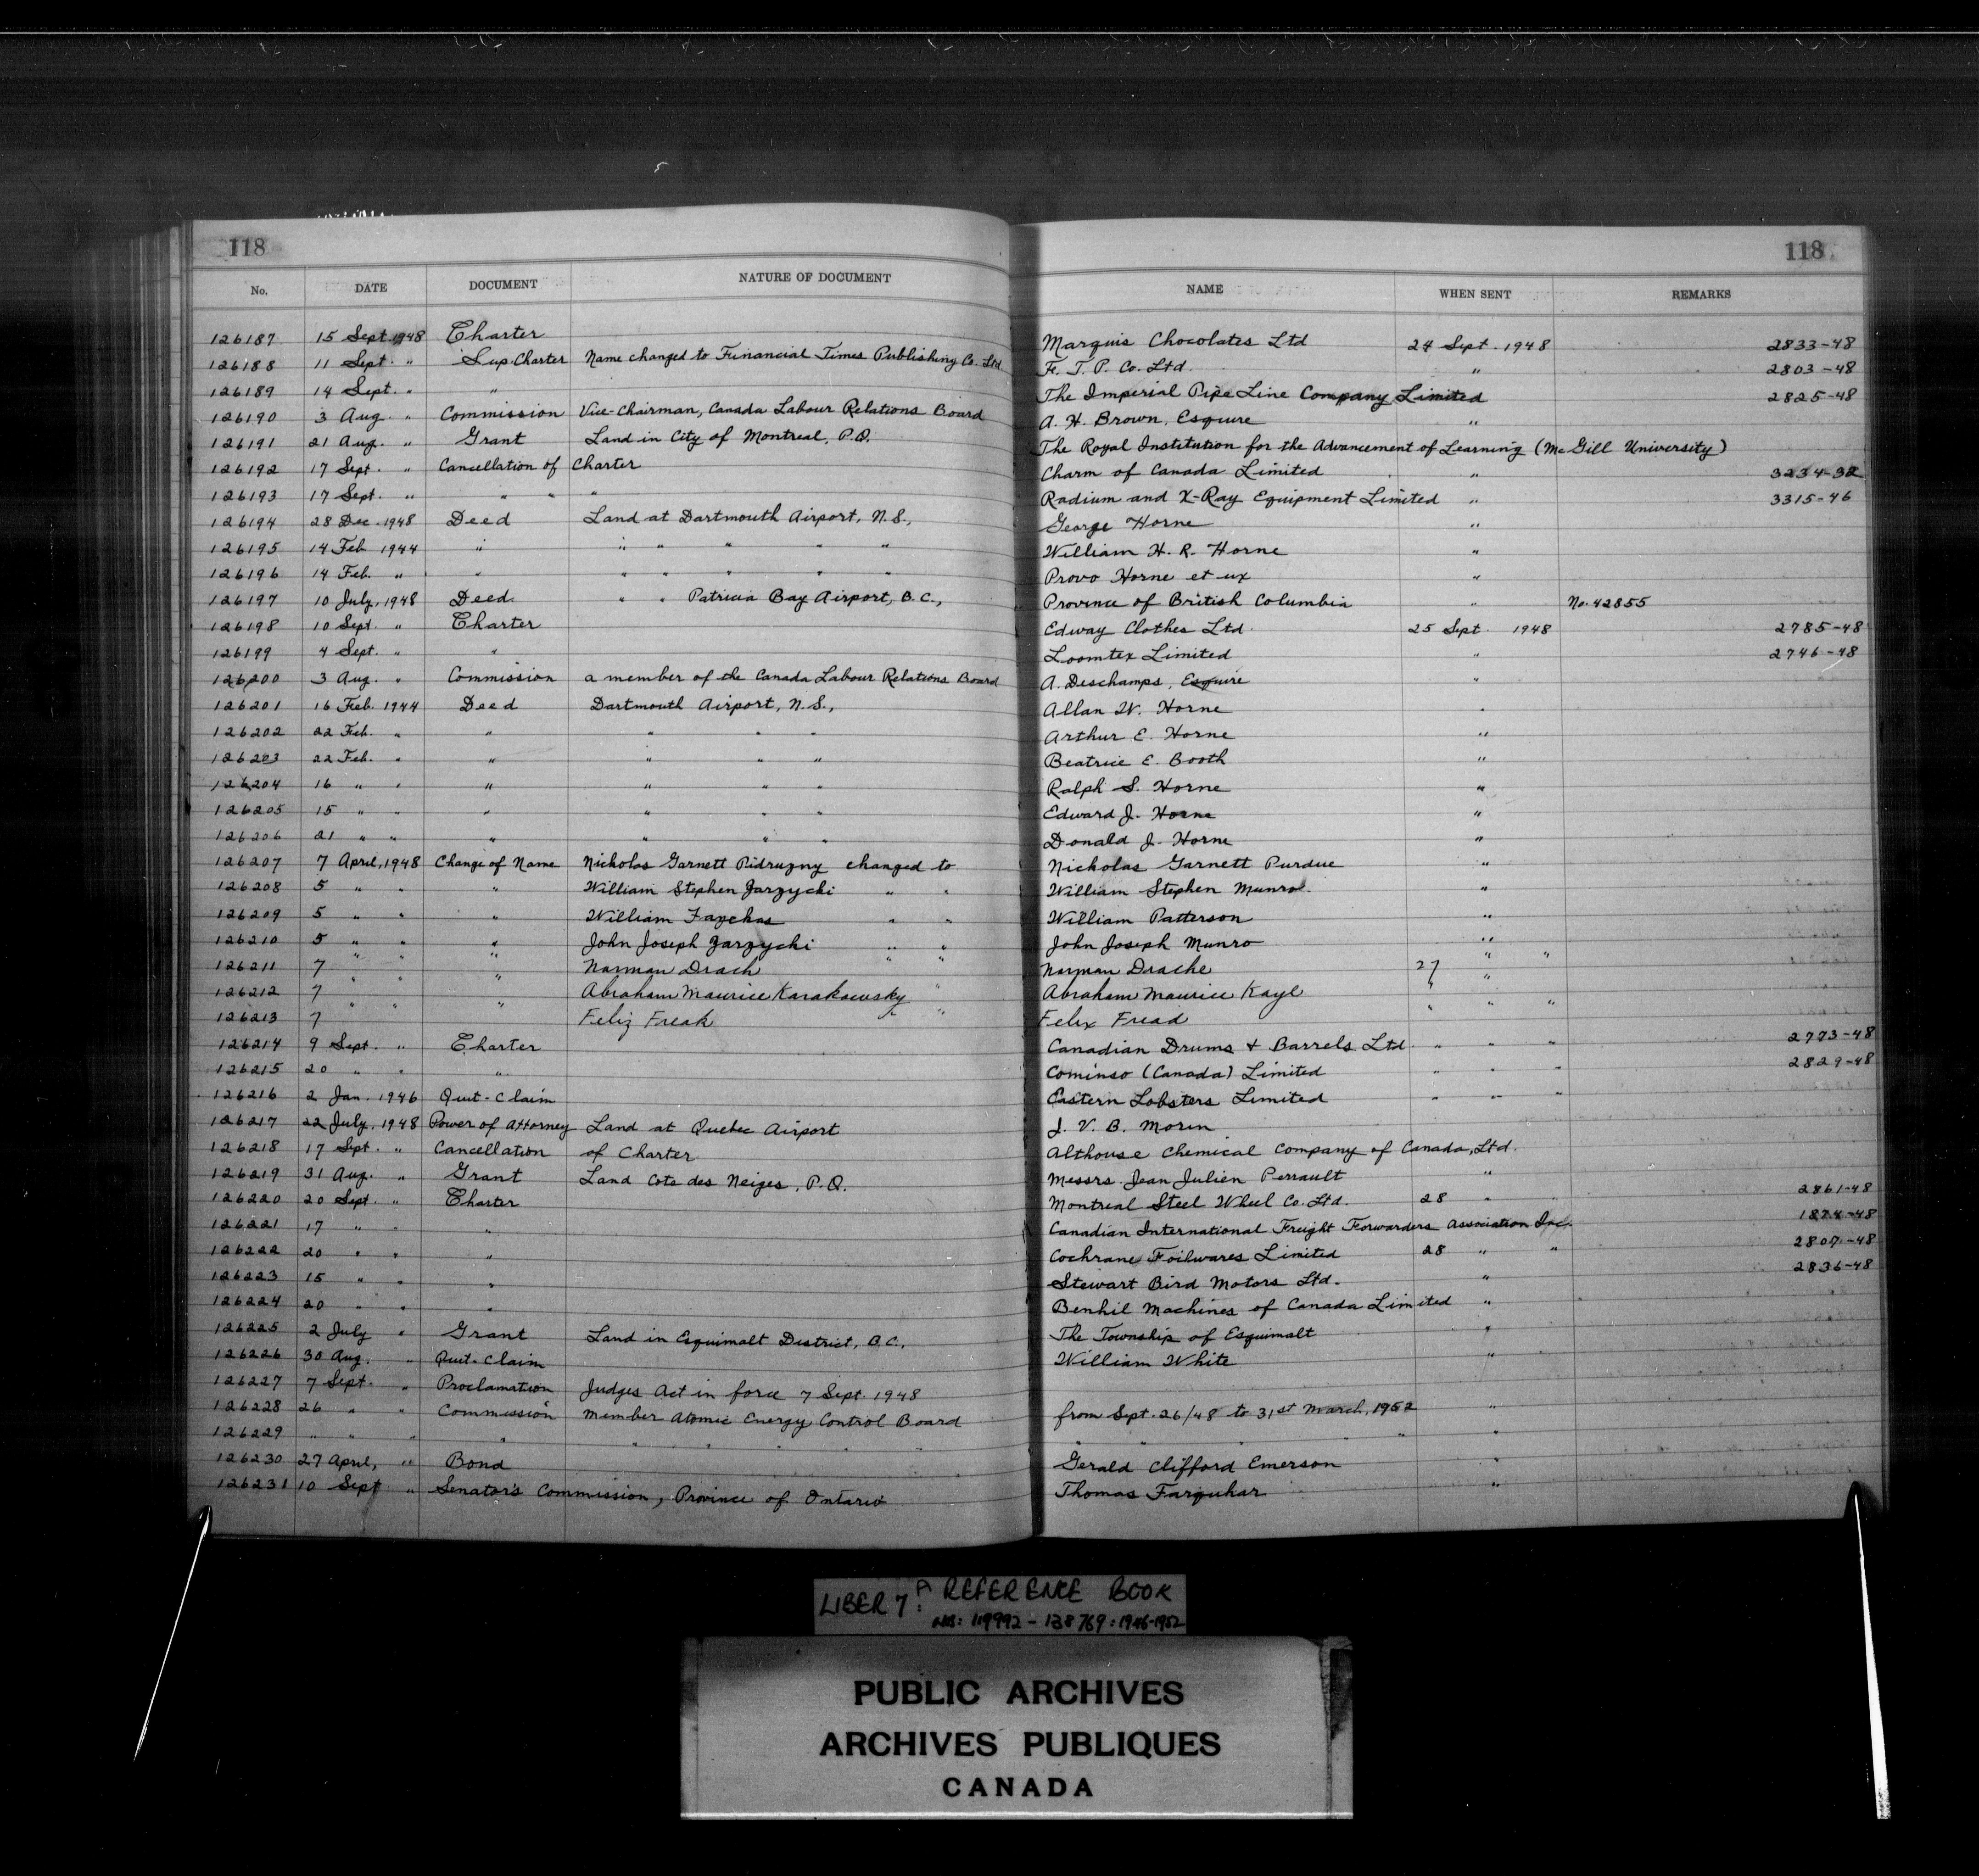 118 118
No. DATE DOCUMENT NATURE OF DOCUMENT NAME WHEN SENT REMARKS
126187 15 Sept. 1948 Charter Marquis Chocolates Ltd 24 Sept. 1948 2833-48
126188 11 Sept. " Sup. Charter Name changed to Financial Times Publishing Co. Ltd. F. T. P. Co. Ltd. " 2803-48
126189 14 Sept. " " The Imperial Pipe Line Company Limited 2825-48
126190 3 Aug. " Commission Vice-Chairman, Canada Labour Relations Board A. H. Brown, Esquire "
126191 21 Aug. " Grant Land in City of Montreal, P.Q. The Royal Institution for the Advancement of Learning (McGill University)
126192 17 Sept. " Cancellation of Charter Charm of Canada Limited " 3234-32
126193 17 Sept. " " " " Radium and X-Ray Equipment Limited " 3315-46
126194 28 Dec. 1948 Deed Land at Dartmouth Airport, N.S., George Horne "
126195 14 Feb 1944 " " " " " " William H. R. Horne "
126196 14 Feb. " " " " " " " Provo Horne et ux "
126197 10 July, 1948 Deed " " Patricia Bay Airport, B.C., Province of British Columbia " No. 42855
126198 10 Sept. " Charter Edway Clothes Ltd. 25 Sept 1948 2785-48
126199 4 Sept. " " Loomtex Limited " 2746-48
126200 3 Aug. " Commission a member of the Canada Labour Relations Board A. Deschamps, Esquire "
126201 16 Feb. 1944 Deed Dartmouth Airport, N.S., Allan W. Horne "
126202 22 Feb. " " " " " Arthur E. Horne "
126203 22 Feb. " " " " " Beatrice E. Booth "
126204 16 " " " " " " Ralph S. Horne "
126205 15 " " " " " " Edward J. Horne "
126206 21 " " " " " " Donald J. Horne "
126207 7 April, 1948 Change of Name Nickolas Garnett Pidruzny changed to Nickolas Garnett Purdue "
126208 5 " " " William Stephen Zarzycki " " William Stephen Munro. "
126209 5 " " " William " " William Patterson "
126210 5 " " " John Joseph Zarzycki " " John Joseph Munro "
126211 7 " " " Norman Drach " " Norman Drache 27 " "
126212 7 " " " Abraham Maurice Karakowsky " Abraham Maurice Kaye " "
126213 7 " " " Feliz Freak " " Felix Fread " " "
126214 9 Sept. " Charter Canadian Drums & Barrels Ltd. " " " 2773-48
126215 20 " " " Cominso (Canada) Limited " " " 2829-48
126216 2 Jan. 1946 Quit-Claim Eastern Lobsters Limited " " "
126217 22 July, 1948 Power of Attorney Land at Quebec Airport J. V. B. Morin
126218 17 Sept. " Cancellation of Charter Althouse Chemical Company of Canada, Ltd.
126219 31 Aug. " Grant Land Cote des Neiges, P.Q. Messrs. Jean Julien Perrault "
126220 20 Sept. " Charter Montreal Steel Wheel Co. Ltd. 28 " 2861-48
126221 17 " " " Canadian International Freight Forwarders Association Inc. 1874-48
126222 20 " " " Cochrane Foilwares Limited 28 " " 2807-48
126223 15 " " " Stewart Bird Motors Ltd. " 2836-48
126224 20 " " " Benhil Machines of Canada Limited "
126225 2 July " Grant Land in Esquimalt District, B.C., The Township of Esquimalt "
126226 30 Aug. " Quit-Claim William White "
126227 7 Sept. " Proclamation Judges Act in force 7 Sept. 1948
126228 26 " " Commission Member Atomic Energy Control Board from Sept. 26/48 to 31st March, 1952 "
126229 " " " " " " " " " " " " " " "
126230 27 April, " Bond Gerald Clifford Emerson "
126231 10 Sept " Senator's Commission, Province of Ontario Thomas Farquhar "
LIBER 7A: REFERENCE BOOK
NOS: 119992 - 138769: 1946-1952
PUBLIC ARCHIVES
ARCHIVES PUBLIQUES
CANADA